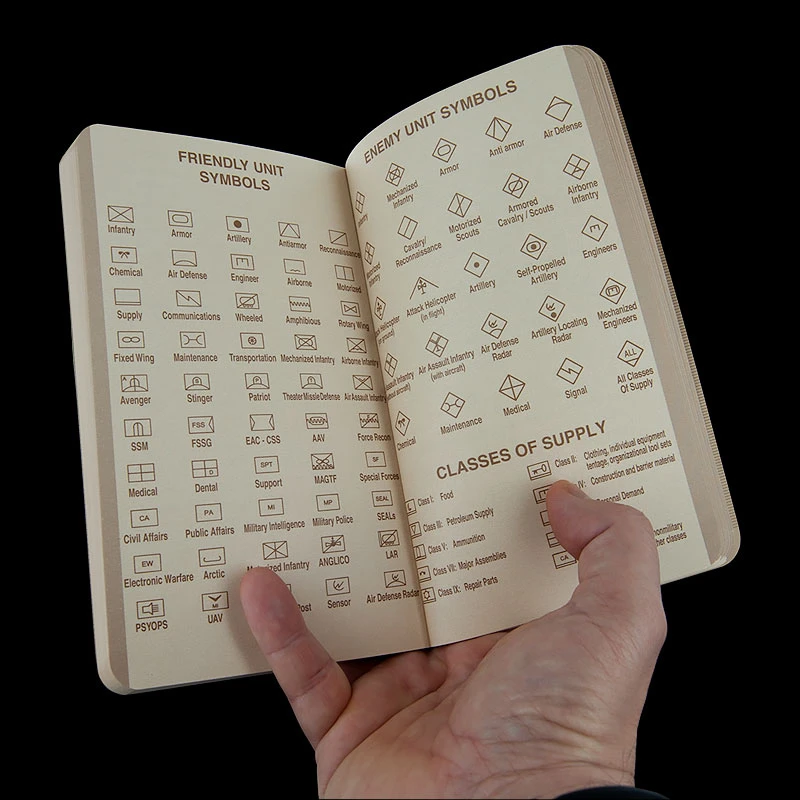 FRIENDLY UNIT
SYMBOLS
Infantry
Armor
Artillery
Antiarmor
Reconnaissance
Chemical
Air Defense
Engineer
Airborne
Motorized
Supply
Communications
Wheeled
Amphibious
Rotary Wing
Fixed Wing
Maintenance
Transportation
Mechanized Infantry
Airborne Infantry
Avenger
Stinger
Patriot
Theater Missle Defense
Air Assault Infantry
SSM
FSS
FSSG
EAC - CSS
AAV
Force Recon
Medical
D
Dental
SPT
Support
MAGTF
SF
Special Forces
CA
Civil Affairs
PA
Public Affairs
MI
Military Intelligence
MP
Military Police
SEAL
SEALs
EW
Electronic Warfare
Arctic
Infantry
ANGLICO
LAR
PSYOPS
MI
UAV
Post
Sensor
Air Defense Radar
ENEMY UNIT SYMBOLS
Mechanized
Infantry
Armor
Anti armor
Air Defense
Cavalry/
Reconnaissance
Motorized
Scouts
Armored
Cavalry / Scouts
Airborne
Infantry
Attack Helicopter
(in flight)
Artillery
Self-Propelled
Artillery
Engineers
Air Assault Infantry
(with aircraft)
Air Defense
Radar
Artillery Locating
Radar
Mechanized
Engineers
Chemical
Maintenance
Medical
Signal
ALL
All Classes
Of Supply
CLASSES OF SUPPLY
Class I: Food
Class II: Clothing, individual equipment
tentage, organizational tool sets
Class III: Petroleum Supply
IV: Construction and barrier material
Class V: Ammunition
Personal Demand
Class VII: Major Assemblies
Class IX: Repair Parts
CA